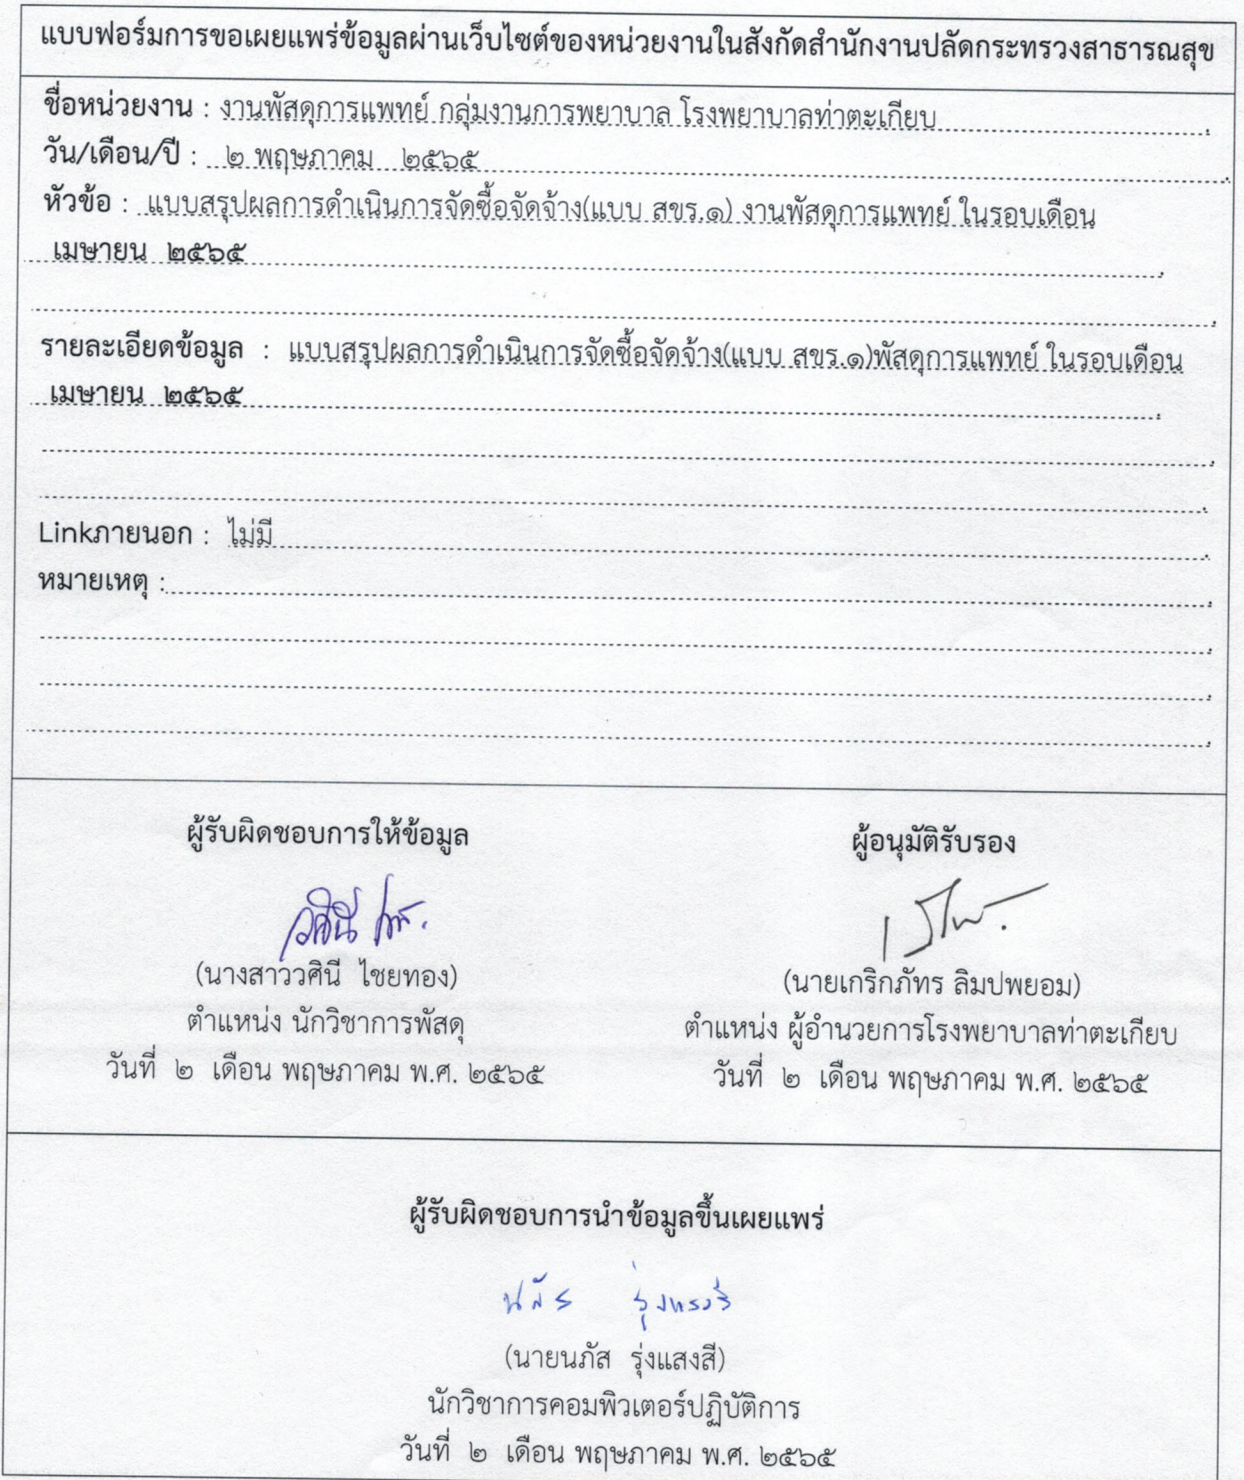 แบบฟอร์มการขอเผยแพร่ข้อมูลผ่านเว็บไซต์ของหน่วยงานในสังกัดสำนักงานปลัดกระทรวงสาธารณสุข
ชื่อหน่วยงาน : งานพัสดุการแพทย์ กลุ่มงานการพยาบาล โรงพยาบาลท่าตะเกียบ
วัน/เดือน/ปี : ๒ พฤษภาคม ๒๕๖๕
หัวข้อ : แบบสรุปผลการดำเนินการจัดซื้อจัดจ้าง(แบบ สขร.๑) งานพัสดุการแพทย์ ในรอบเดือน
เมษายน ๒๕๖๕
รายละเอียดข้อมูล : แบบสรุปผลการดำเนินการจัดซื้อจัดจ้าง(แบบ สขร.๑)พัสดุการแพทย์ ในรอบเดือน
เมษายน ๒๕๖๕
Linkภายนอก : ไม่มี
หมายเหตุ :
ผู้รับผิดชอบการให้ข้อมูล
(นางสาววศินี ไชยทอง)
ตำแหน่ง นักวิชาการพัสดุ
วันที่ ๒ เดือน พฤษภาคม พ.ศ. ๒๕๖๕
ผู้อนุมัติรับรอง
(นายเกริกภัทร ลิมปพยอม)
ตำแหน่ง ผู้อำนวยการโรงพยาบาลท่าตะเกียบ
วันที่ ๒ เดือน พฤษภาคม พ.ศ. ๒๕๖๕
ผู้รับผิดชอบการนำข้อมูลขึ้นเผยแพร่
นภัส รุ่งแสงสี
(นายนภัส รุ่งแสงสี)
นักวิชาการคอมพิวเตอร์ปฏิบัติการ
วันที่ ๒ เดือน พฤษภาคม พ.ศ. ๒๕๖๕